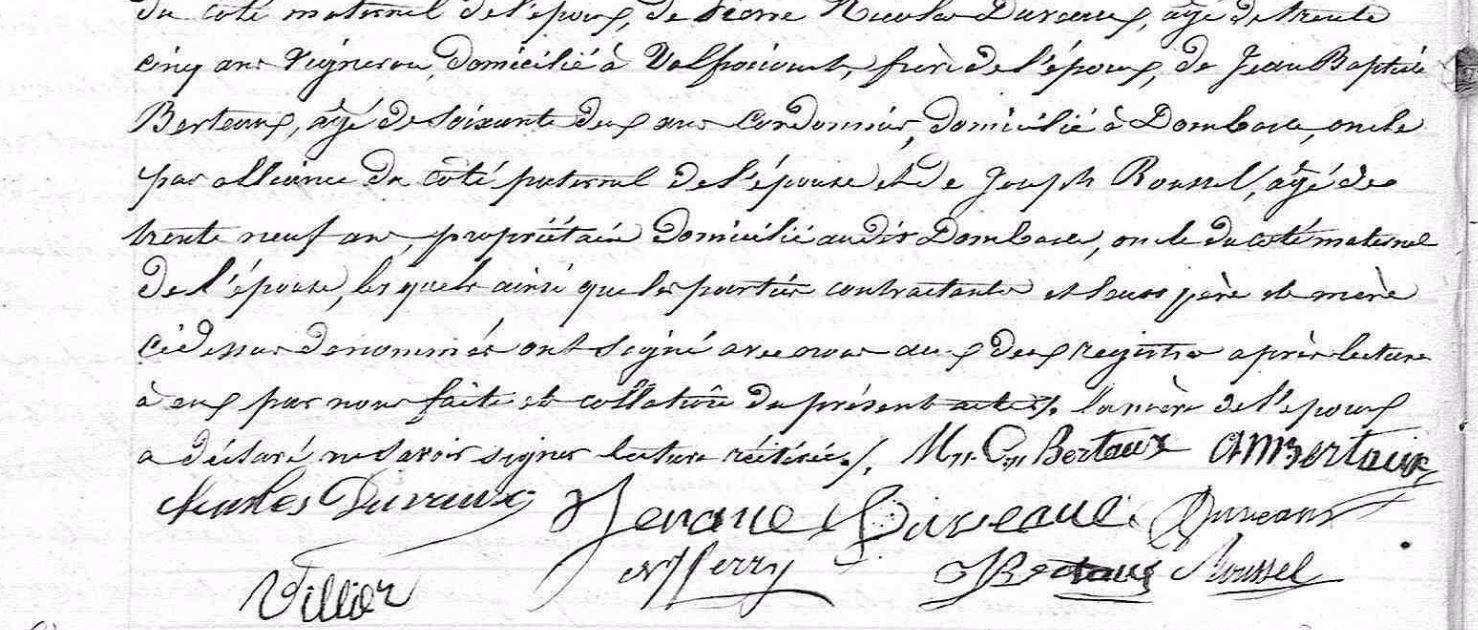 du coté maternel de l'époux, de Pierre Nicolas Duveaux, âgé de trente
cinq ans vigneron, domicilié à Valfroicourt, frère de l'époux, de Jean Baptiste
Berteaux, âgé de soixante deux ans cordonnier, domicilié à Dombasle, oncle
par alliance du coté paternel de l'épouse et de Joseph Roussel, âgé de
trente neuf ans, propriétaire domicilié audit Dombasle, oncle du coté maternel
de l'épouse, les quels ainsi que les parties contractantes et leurs père et mère
ci dessus dénommés ont signé avec nous aux deux registres après lecture
à eux par nous faite et collation du présent acte ./. la mère de l'époux
a déclaré ne savoir signer lecture réitérée ./. M. C. Bertaux AMBertaux
Charles Duvaux Duveaux Duveaux
Villier N Herry JBertaux Roussel